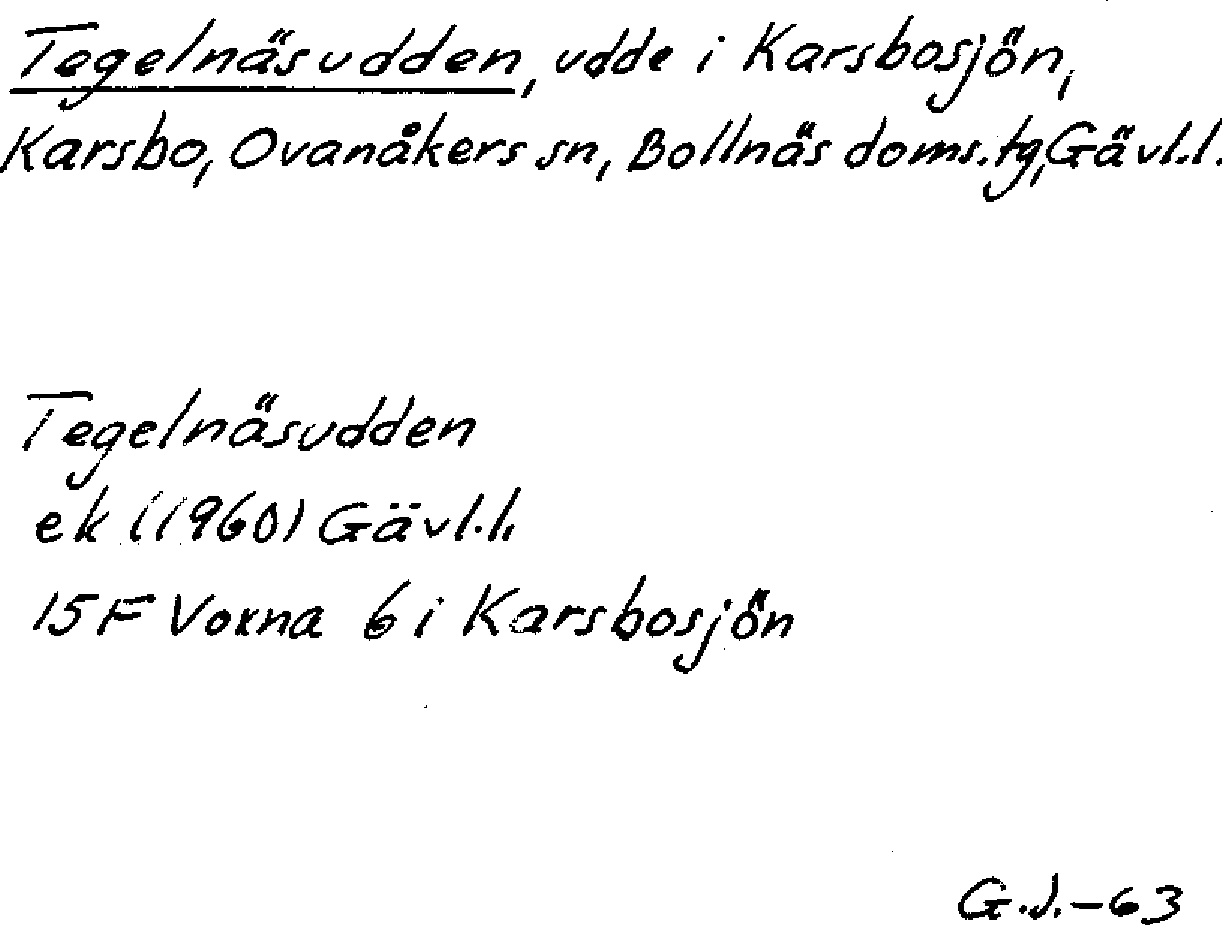 Tegelnäsudden, udde i Karsbosjön,
Karsbo, Ovanåkers sn, Bollnäs doms.tg, Gävl.l.
Tegelnäsudden
ek (1960) Gävl.l.
15F Voxna 6 i Karsbosjön
G.J.-63